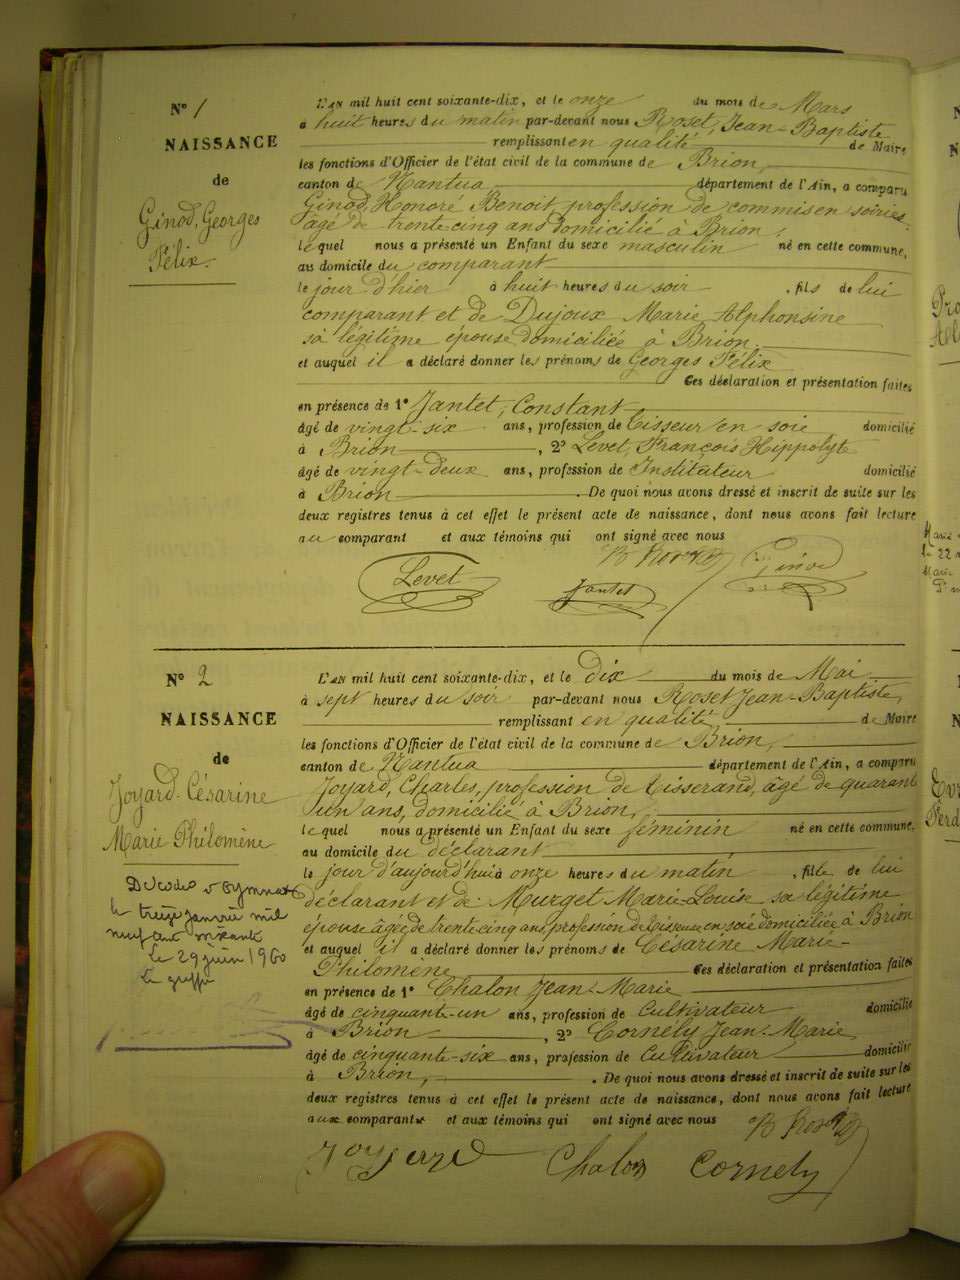 N° 1
NAISSANCE
de
Ginod, Georges
Félix.
L'AN mil huit cent soixante-dix, et le onze du mois de Mars
à huit heures du matin par-devant nous Roset, Jean-Baptiste
remplissant en qualité de Maire
les fonctions d'Officier de l'état civil de la commune de Brion,
canton de Nantua département de l'Ain, a comparu
Ginod, Honoré Benoit, profession de commis en soieries
âgé de trente cinq ans domicilié à Brion,
lequel nous a présenté un Enfant du sexe masculin né en cette commune,
au domicile du comparant
le jour d'hier à huit heures du soir, fils de lui
comparant et de Dujoux Marie Alphonsine
sa légitime épouse domiciliée à Brion
et auquel il a déclaré donner les prénoms de Georges Félix
Ces déclaration et présentation faites
en présence de 1° Jantet, Constant
âgé de vingt-six ans, profession de Tisseur en soie domicilié
à Brion, 2° Levet, François Hippolyte
âgé de vingt-deux ans, profession de Instituteur domicilié
à Brion. De quoi nous avons dressé et inscrit de suite sur les
deux registres tenus à cet effet le présent acte de naissance, dont nous avons fait lecture
au comparant et aux témoins qui ont signé avec nous
Ginod
Levet
Jantet
N° 2
NAISSANCE
de
Joyard-Césarine
Marie Philomène
Décédée à Oyonnax
le treize janvier mil
neuf cent soixante
Le 29 juin 1960
Le greffier
L'AN mil huit cent soixante-dix, et le dix du mois de Mai
à sept heures du soir par-devant nous Roset Jean-Baptiste
remplissant en qualité de Maire
les fonctions d'Officier de l'état civil de la commune de Brion,
canton de Nantua département de l'Ain, a comparu
Joyard, Charles, profession de Tisserand, âgé de quarante
un ans, domicilié à Brion,
lequel nous a présenté un Enfant du sexe féminin né en cette commune,
au domicile du déclarant
le jour d'aujourd'hui à onze heures du matin, fille de lui
déclarant et de Murget Marie-Louise sa légitime
épouse âgée de trente cinq ans profession de Tisseuse en soie domiciliée à Brion
et auquel il a déclaré donner les prénoms de Césarine Marie-
Philomène Ces déclaration et présentation faites
en présence de 1° Chalon Jean-Marie
âgé de cinquante-un ans, profession de Cultivateur domicilié
à Brion, 2° Cornely Jean-Marie
âgé de cinquante-six ans, profession de Cultivateur domicilié
à Brion,. De quoi nous avons dressé et inscrit de suite sur les
deux registres tenus à cet effet le présent acte de naissance, dont nous avons fait lecture
aux comparants et aux témoins qui ont signé avec nous
Joyard Chalon Cornely